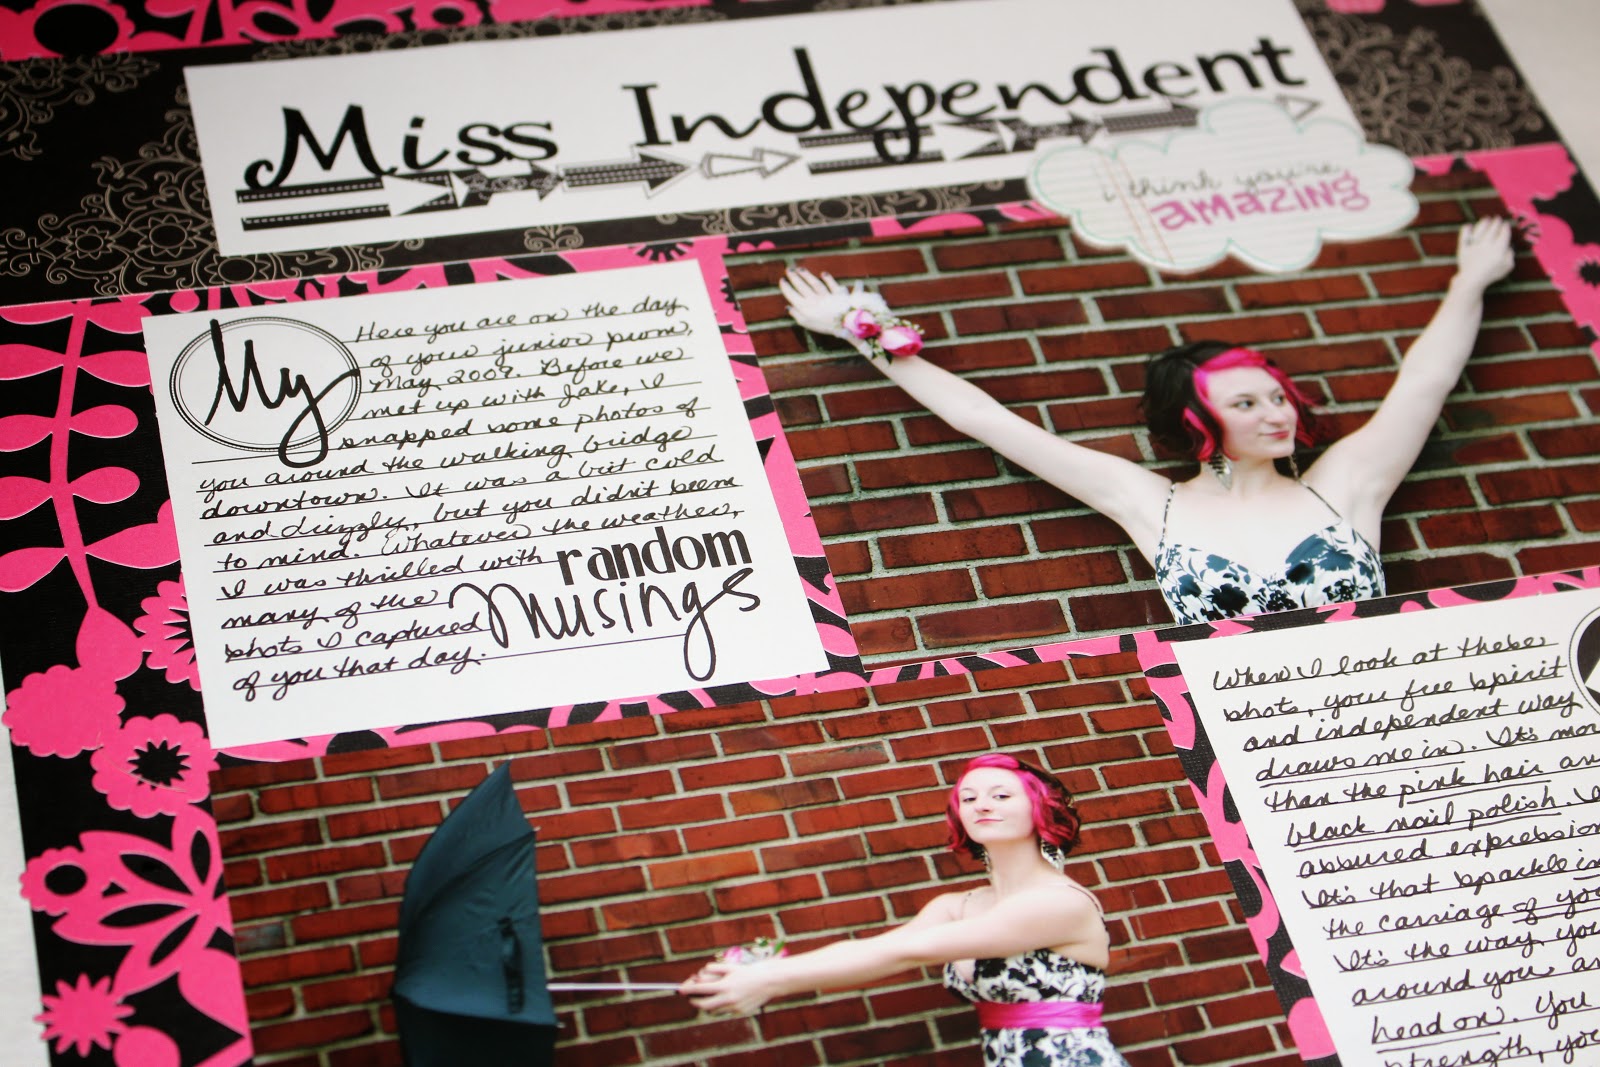 Miss Independent
i think you're
amazing
My
Here you are on the day
of your junior prom,
May 2009. Before we
met up with Jake, I
snapped some photos of
you around the walking bridge
downtown. It was a bit cold
and drizzly, but you didn't seem
to mind. Whatever the weather,
I was thrilled with random
many of the musings
shots I captured
of you that day.
When I look at these
shots, your free spirit
and independent way
draws me in. It's more
than the pink hair and
black nail polish.
assured expression
It's that sparkle in
the carriage of you
It's the way you
around you
head on. You
strength, you